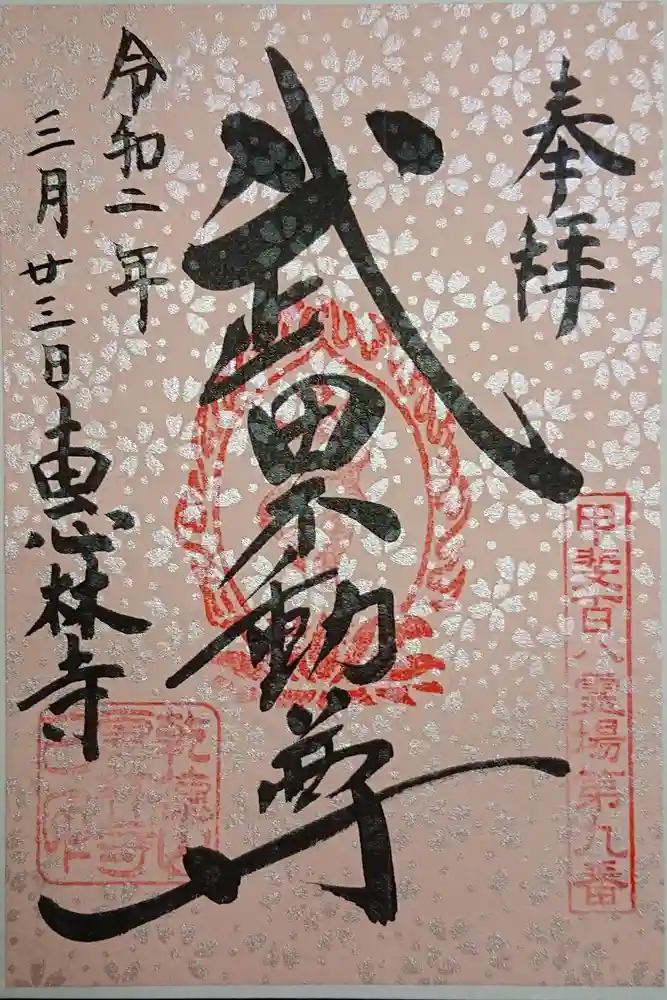 奉拝
甲斐百八霊場第九番
武田不動尊
令和二年
三月廿三日
恵林寺
乾徳山